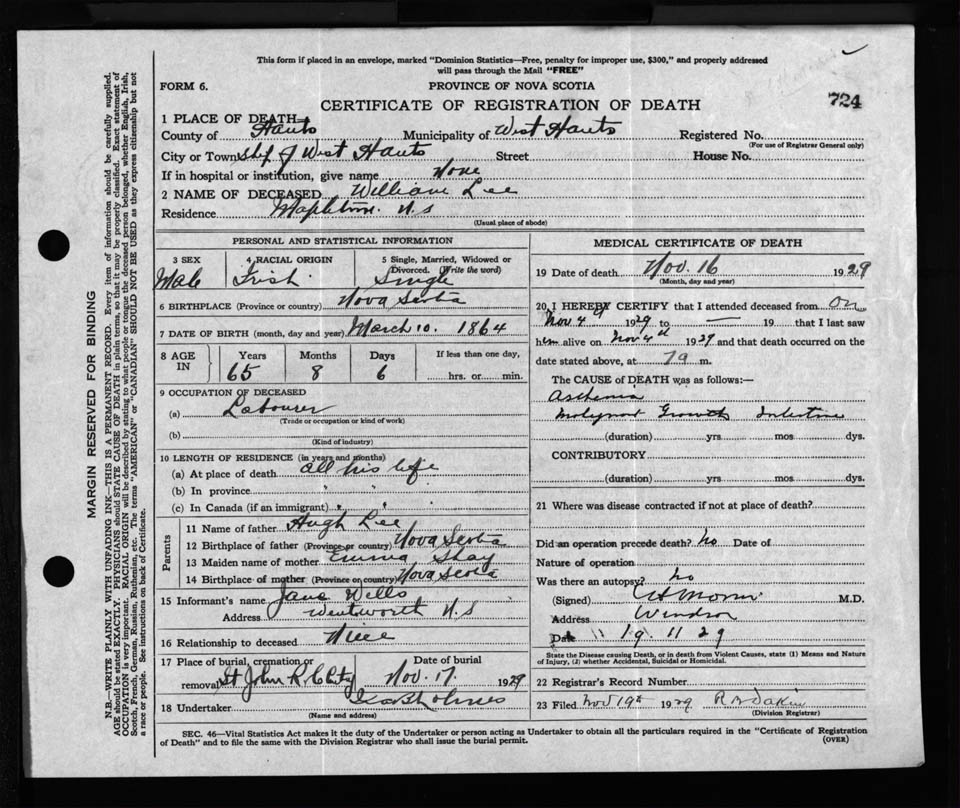 This form if placed in an envelope, marked "Dominion Statistics—Free, penalty for improper use, $300," and properly addressed
will pass through the Mail "FREE"
FORM 6.
PROVINCE OF NOVA SCOTIA
CERTIFICATE OF REGISTRATION OF DEATH
724
1 PLACE OF DEATH
County of Hants Municipality of West Hants Registered No.
(For use of Registrar General only)
City or Town Shp of West Hants Street House No.
If in hospital or institution, give name None
2 NAME OF DECEASED William Lee
Residence Mapleton. N.S
(Usual place of abode)
PERSONAL AND STATISTICAL INFORMATION
3 SEX 4 RACIAL ORIGIN 5 Single, Married, Widowed or
Divorced. (Write the word)
Male Irish Single
6 BIRTHPLACE (Province or country) Nova Scotia
7 DATE OF BIRTH (month, day and year) March 10. 1864
8 AGE IN Years Months Days If less than one day,
65 8 6 hrs. or min.
9 OCCUPATION OF DECEASED
(a) Labourer
(Trade or occupation or kind of work)
(b)
(Kind of industry)
10 LENGTH OF RESIDENCE (in years and months)
(a) At place of death all his life
(b) In province " "
(c) In Canada (if an immigrant) " "
Parents
11 Name of father Hugh Lee
12 Birthplace of father (Province or country) Nova Scotia
13 Maiden name of mother Emma Shay
14 Birthplace of mother (Province or country) Nova Scotia
15 Informant's name Jane Wells
Address Wentworth N.S
16 Relationship to deceased Niece
17 Place of burial, cremation or Date of burial
removal St John R.C. Nov. 17. 1929
18 Undertaker
(Name and address)
MEDICAL CERTIFICATE OF DEATH
19 Date of death Nov. 16 1929
(Month, day and year)
20 I HEREBY CERTIFY that I attended deceased from On
Nov 4th 1929 to — 19 that I last saw
him alive on Nov 4th 1929 and that death occurred on the
date stated above, at 7 a m.
The CAUSE of DEATH was as follows:—
Asthenia
Malignant Growth Intestine
(duration) yrs mos dys.
CONTRIBUTORY
(duration) yrs. mos. dys.
21 Where was disease contracted if not at place of death?
Did an operation precede death? No Date of
Nature of operation
Was there an autopsy? No
(Signed) M.D.
Address Windsor
Date 19 11 29
State the Disease causing Death, or in death from Violent Causes, state (1) Means and Nature
of Injury, (2) whether Accidental, Suicidal or Homicidal.
22 Registrar's Record Number
23 Filed Nov 19th 1929 R W Dakin
(Division Registrar)
SEC. 46—Vital Statistics Act makes it the duty of the Undertaker or person acting as Undertaker to obtain all the particulars required in the "Certificate of Registration
of Death" and to file the same with the Division Registrar who shall issue the burial permit.
(OVER)
MARGIN RESERVED FOR BINDING
N.B.—WRITE PLAINLY WITH UNFADING INK—THIS IS A PERMANENT RECORD. Every item of information should be carefully supplied.
AGE should be stated EXACTLY. PHYSICIANS should STATE CAUSE OF DEATH in plain terms, so that it may be properly classified. Exact statement of
OCCUPATION is very important. RACIAL ORIGIN will be described by stating to what people or tongue the deceased person belonged, whether English, Irish,
Scotch, French, German, Russian, Ruthenian, etc. The terms "AMERICAN" or "CANADIAN" SHOULD NOT BE USED as they express citizenship but not
a race or people. See instructions on back of Certificate.